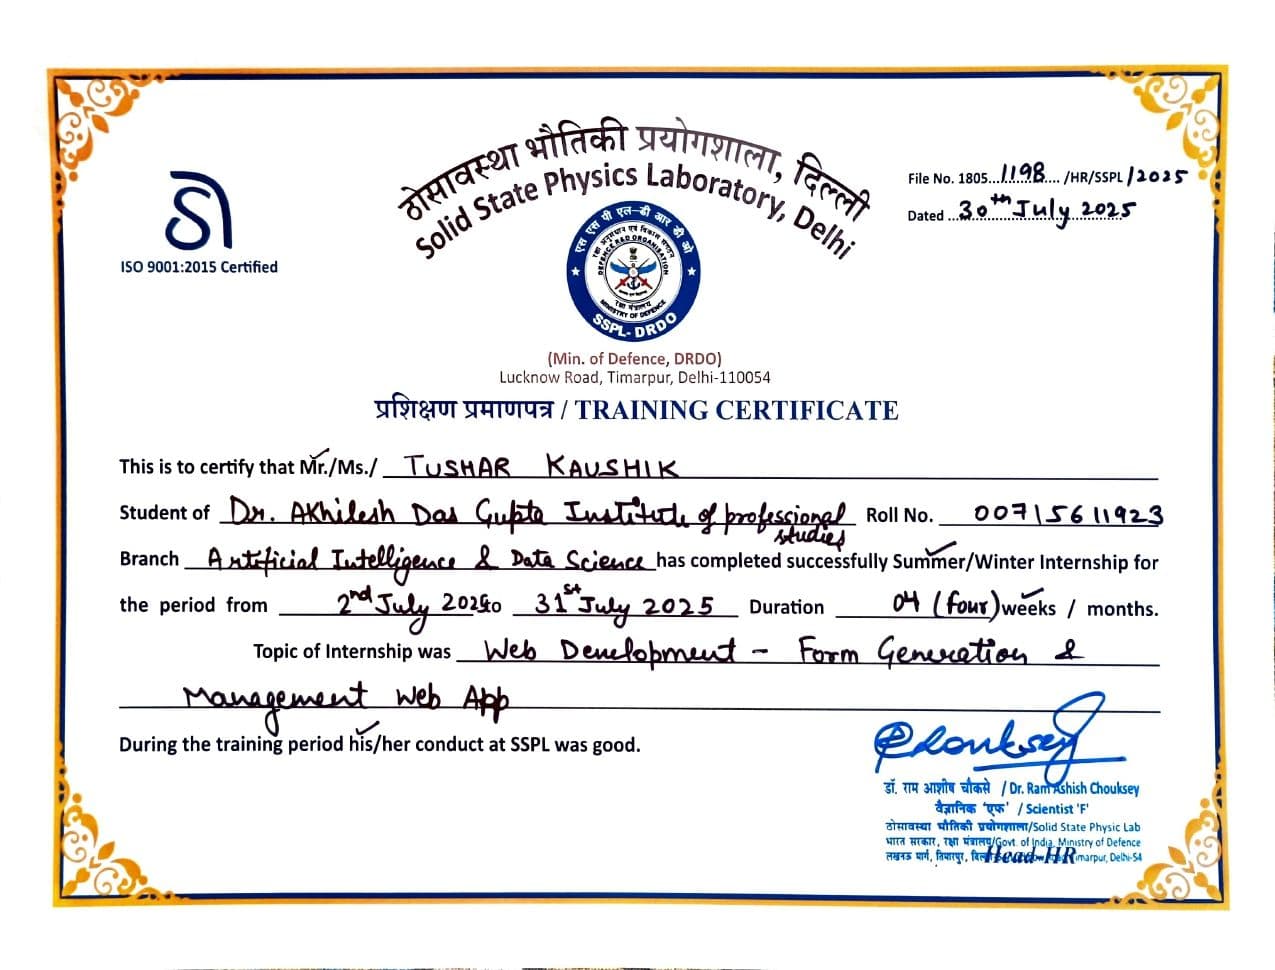 ठोसावस्था भौतिकी प्रयोगशाला, दिल्ली
Solid State Physics Laboratory, Delhi
File No. 1805...1198.... /HR/SSPL/2025
Dated ...30th July 2025
ISO 9001:2015 Certified
एस एस पी एल-डी आर डी ओ
रक्षा अनुसंधान एवं विकास संगठन
DEFENCE R&D ORGANISATION
रक्षा मंत्रालय
MINISTRY OF DEFENCE
SSPL-DRDO
(Min. of Defence, DRDO)
Lucknow Road, Timarpur, Delhi-110054
प्रशिक्षण प्रमाणपत्र / TRAINING CERTIFICATE
This is to certify that Mr./Ms./ TUSHAR KAUSHIK
Student of Dr. Akhilesh Das Gupta Institute of professional studies Roll No. 00715611923
Branch Artificial Intelligence & Data Science has completed successfully Summer/Winter Internship for
the period from 2nd July 2025 to 31st July 2025 Duration 04 (four) weeks / months.
Topic of Internship was Web Development - Form Generation &
Management Web App
During the training period his/her conduct at SSPL was good.
डॉ. राम आशीष चौकसे / Dr. Ram Ashish Chouksey
वैज्ञानिक 'एफ' / Scientist 'F'
ठोसावस्था भौतिकी प्रयोगशाला/Solid State Physic Lab
भारत सरकार, रक्षा मंत्रालय/Govt. of India, Ministry of Defence
लखनऊ मार्ग, तिमारपुर, Timarpur, Delhi-54
Head-HR